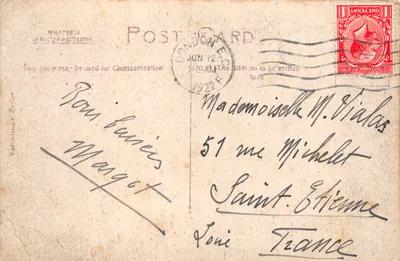 POST CARD
This space may be used for Communication
The Address to be written
here
LONDON. E.C.
JUN 12
AM
1922
ONE PENNY
1
1
Bons baisers
Margot
Mademoiselle M. Vialas
51 rue Michelet
Saint. Etienne
Loire
France